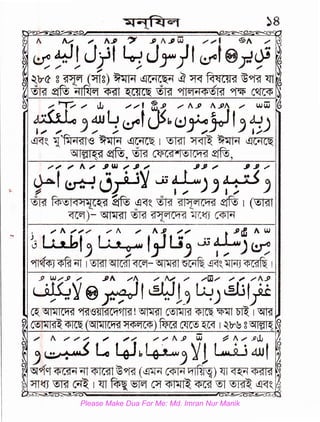 মন্‌যিল ১৪
قَدِيْرٌ ۝ اٰمَنَ الرَّسُوْلُ بِمَآ اُنْزِلَ اِلَيْهِ مِنْ
২৮৫ ঃ রসূল (সাঃ) ঈমান এনেছেন ঐ সব বিষয়ের উপর যা
তাঁর প্রতি নাযিল করা হয়েছে তাঁর পালনকর্তার পক্ষ থেকে
رَّبِّهٖ وَالْمُؤْمِنُوْنَ ؕ كُلٌّ اٰمَنَ بِاللّٰهِ وَمَلٰٓئِكَتِهٖ
এবং মু'মিনরাও ঈমান এনেছে। তারা সবাই ঈমান এনেছে
আল্লাহর প্রতি, তাঁর ফেরেশতাদের প্রতি,
وَكُتُبِهٖ وَرُسُلِهٖ لَا نُفَرِّقُ بَيْنَ اَحَدٍ
তাঁর কিতাবসমূহের প্রতি এবং তাঁর রাসূলদের প্রতি। (তারা
বলে)- আমরা তাঁর রসূলদের মধ্যে কোন
مِّنْ رُّسُلِهٖ وَقَالُوْا سَمِعْنَا وَاَطَعْنَا
পার্থক্য করি না। তারা আরো বলে- আমরা শুনেছি এবং মান্য করেছি।
غُفْرَانَكَ رَبَّنَا وَاِلَيْكَ الْمَصِيْرُ ۝ لَا يُكَلِّفُ
হে আমাদের পরওয়ারদেগার! আমরা তোমার কাছে ক্ষমা চাই। আর
তোমারই কাছে (আমাদের সকলকে) ফিরে যেতে হবে। ২৮৬ ঃ আল্লাহ
اللّٰهُ نَفْسًا اِلَّا وُسْعَهَا لَهَا مَا كَسَبَتْ وَ
অর্পণ করেন না কারো উপর (এমন কোন দায়িত্ব) যা বহন করার
সাধ্য তার নেই। যা কিছু ভাল সে কামাই করে তা তারই এবং
Please Make Dua For Me: Md. Imran Nur Manik